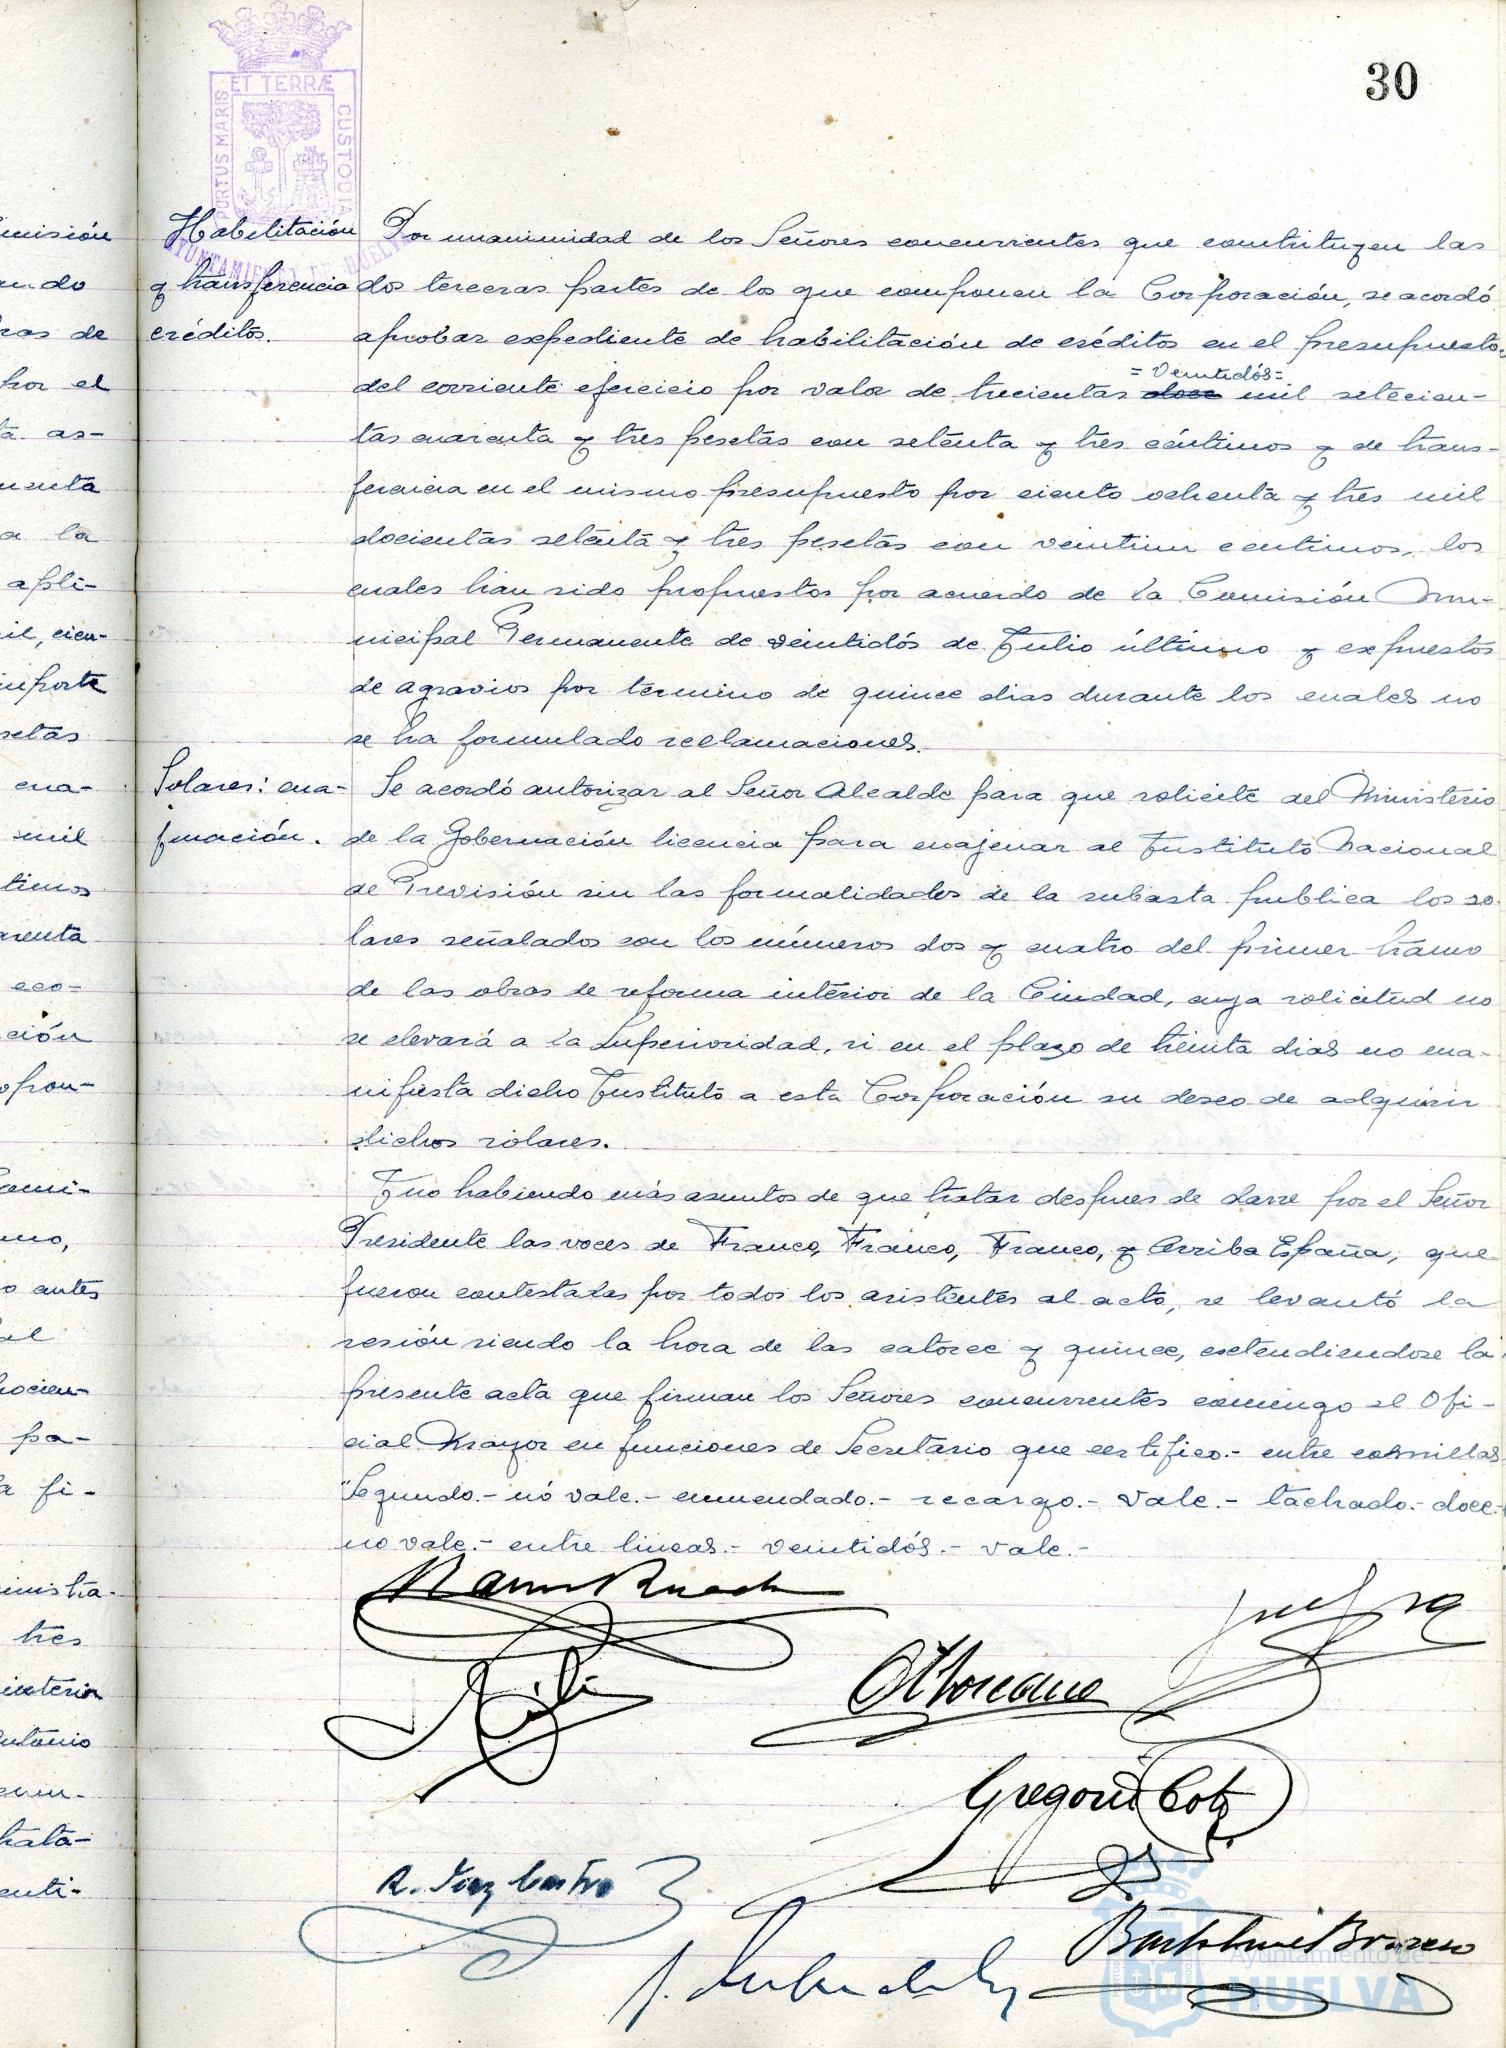 30
PORTUS MARIS ET TERRÆ CUSTODIA
AYUNTAMIENTO DE HUELVA
misión
ando
ras de
por el
ta as-
uenta
a la
apli-
il, cien-
importe
setas
ena-
mil
timos
arenta
eco-
ción
opon-
mo,
o antes
al
pa-
a fi-
minist́ra-
tres
interior
Antonio
trata-
enti-
Habilitación
y transferencia
créditos.
Por unanimidad de los Señores concurrentes que contituyen las
dos terceras partes de los que componen la Corporación, se acordó
aprobar expediente de habilitación de créditos en el presupuesto
= Veintidós =
del corriente ejercicio por valor de trecientas doce mil setecien-
tas cuarenta y tres pesetas con setenta y tres céntimos y de trans-
ferencia en el mismo presupuesto por ciento ochenta y tres mil
docientas setenta y tres pesetas con veintiun centimos, los
cuales han sido propuestos por acuerdo de la Comisión Mu-
nicipal Permanente de veintidós de Julio último y expuestos
de agravios por termino de quince dias durante los cuales no
se ha formulado reclamaciones.
Solares: ena-
jenación.
Se acordó autorizar al Señor Alcalde para que solicite del Ministerio
de la Gobernación licencia para enajenar al Instituto Nacional
de Previsión sin las formalidades de la subasta publica los so-
lares señalados con los números dos y cuatro del primer tramo
de las obras de reforma interior de la Ciudad, cuya solicitud no
se elevará a la Superioridad, si en el plazo de treinta dias no ma-
nifiesta dicho Instituto a esta Corporación su deseo de adquirir
dichos solares.
Y no habiendo más asuntos de que tratar despues de darse por el Señor
Presidente las voces de Franco, Franco, Franco, y Arriba España, que
fueron contestadas por todos los asistentes al acto, se levantó la
sesión siendo la hora de las catorce y quince, extendiendose la
presente acta que firman los Señores concurrentes conmigo el Ofi-
cial Mayor en funciones de Secretario que certifico.- entre comillas
"Segundo.- nó vale.- enmendado.- recargo.- vale.- tachado.- doce.-
no vale.- entre lineas.- veintidós.- vale.-
Gregorio
R. Diaz Castro
Bartolomé
Ayuntamiento de
HUELVA